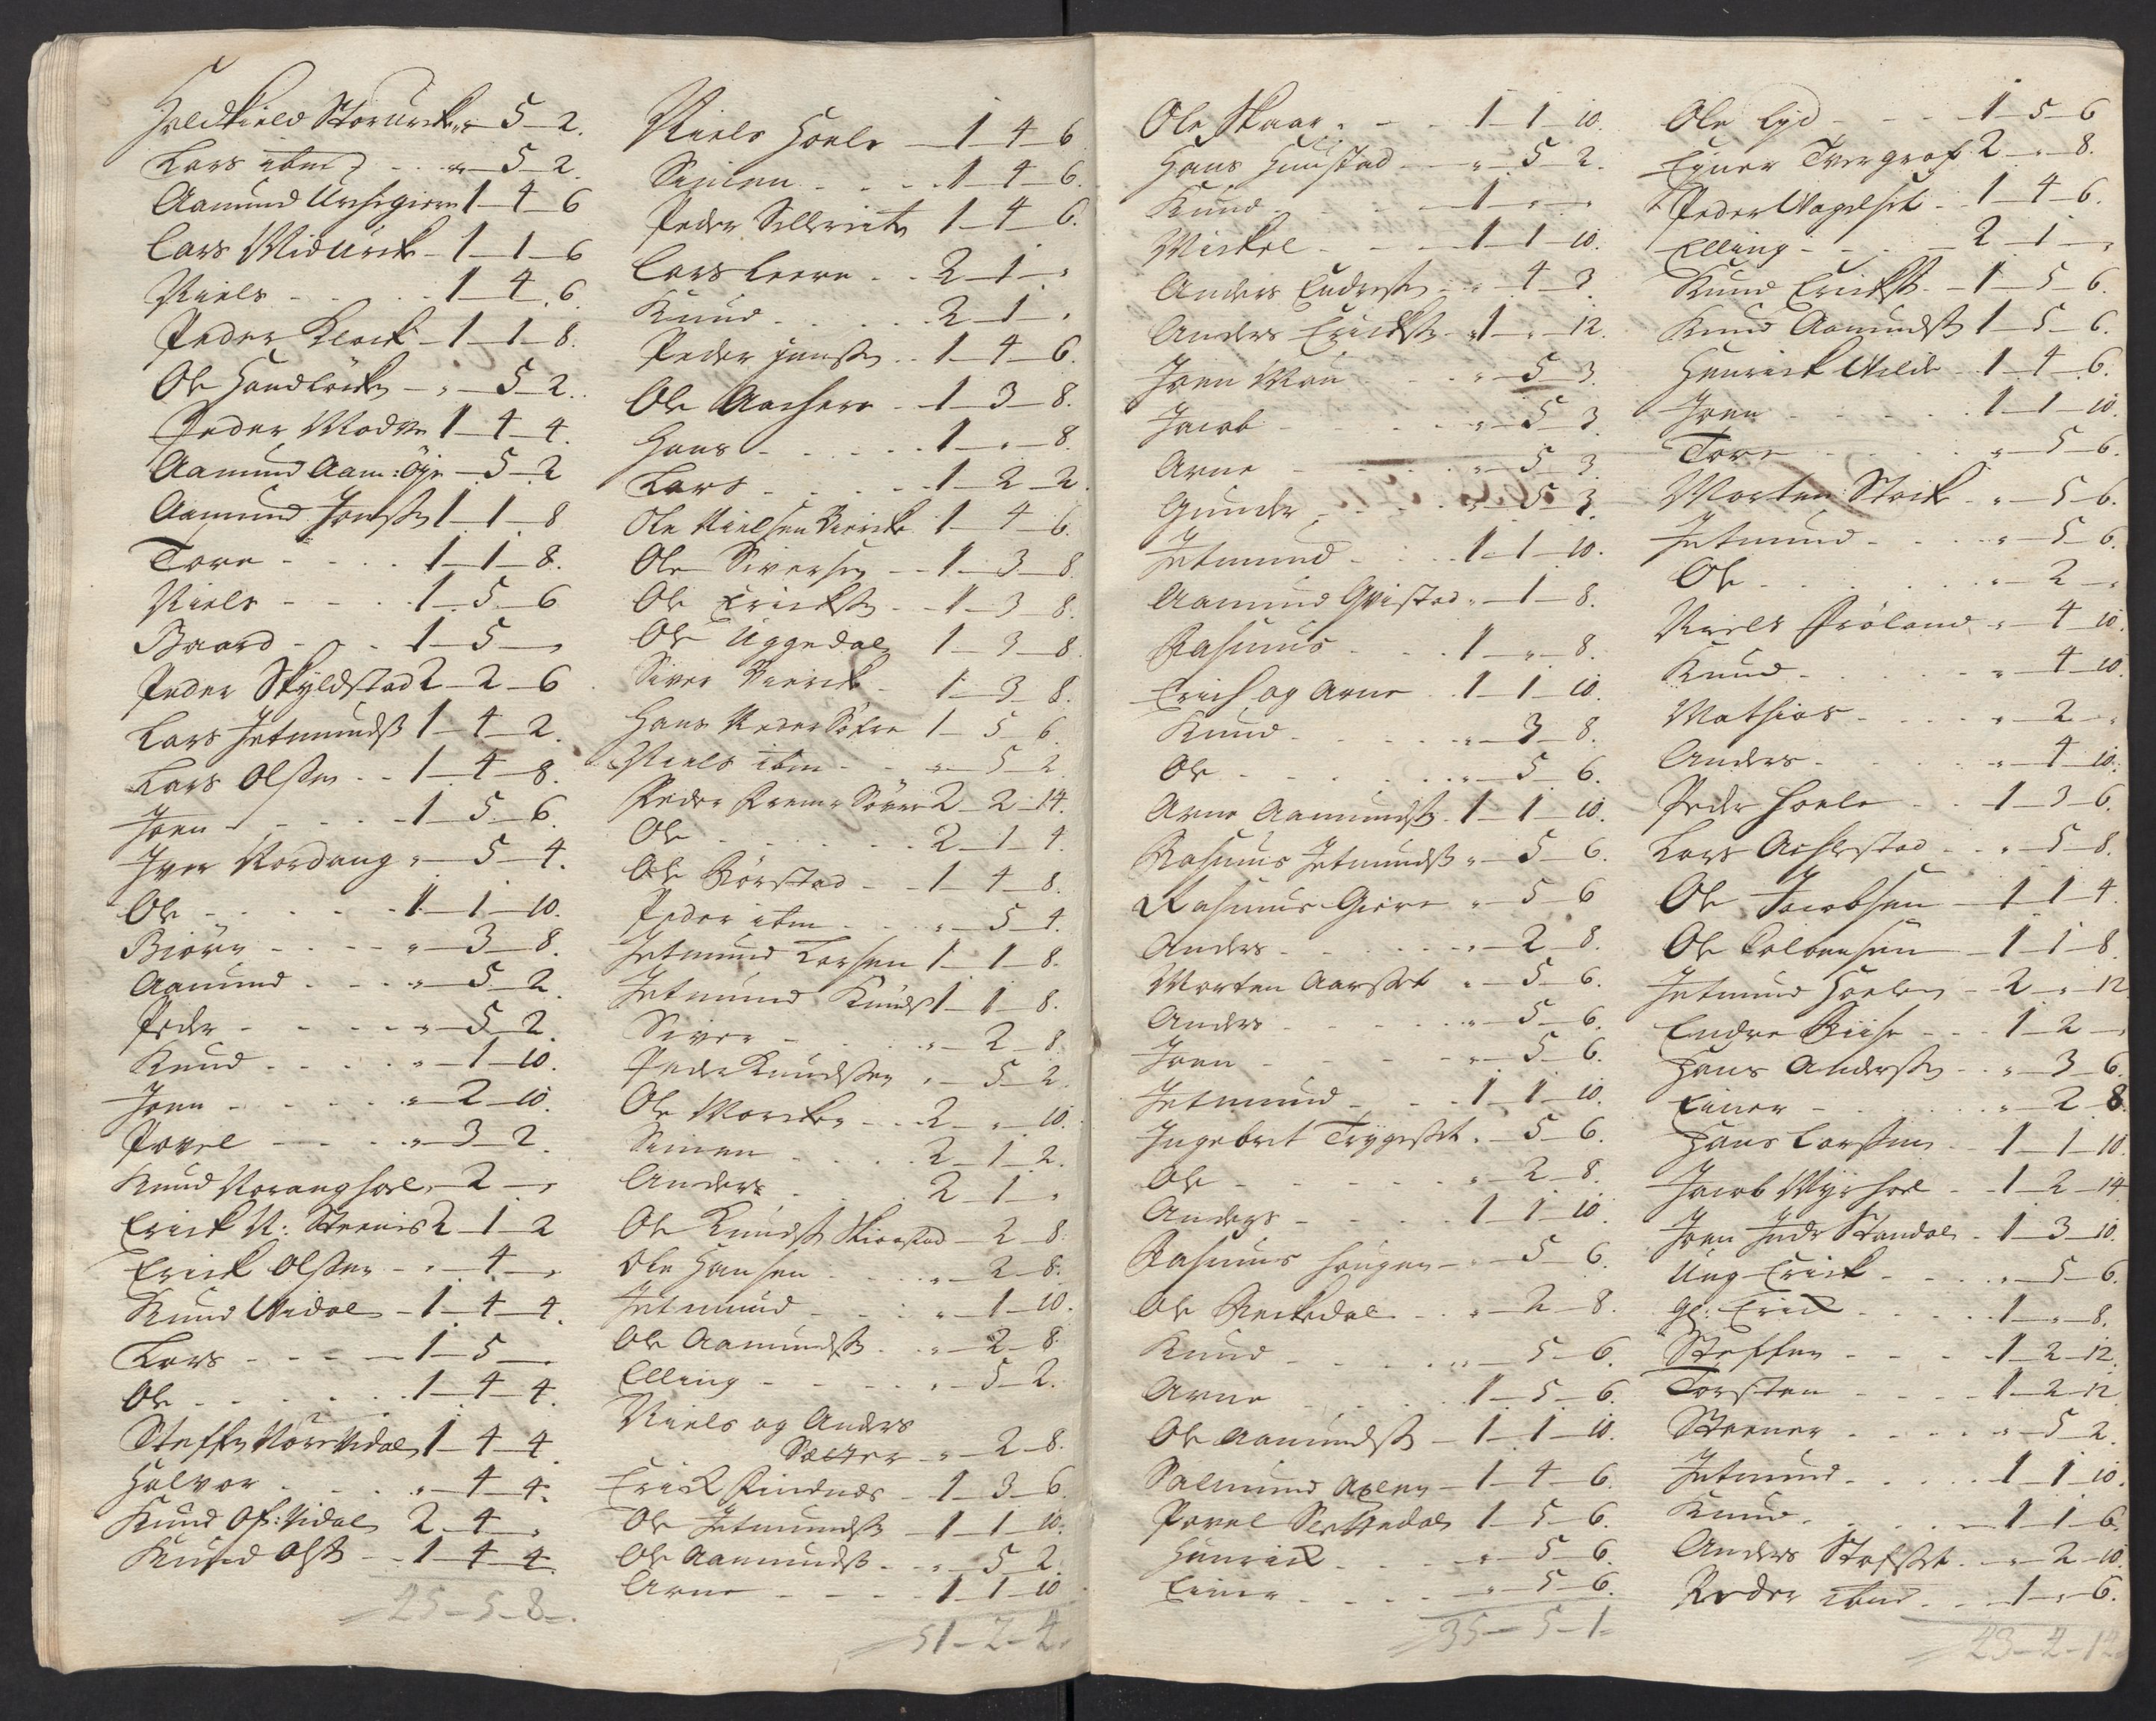 Lars ibm " 5 2
Aamund 1 4 6
Lars Midurck 1 1 6
Niels 1 4 6
Peder Klock 1 1 8
Ole " 5 2
Peder 1 4 4
Aamund Aam: Öye 5 2
Aamund Jonsß 1 1 8
Tore 1 1 8
Niels 1 5 6
Baard 1 5 "
Peder Skyldstad 2 2 6
Lars Jetmundß 1 4 2
Lars Olßen 1 4 8
Joen 1 5 6
Iver Nordang " 5 4
Ole 1 1 10
Biörn " 3 8
Aamund " 5 2
Peder " 5 2
Knud " 1 10
Joen " 2 10
Povel " 3 2
Knud 2 "
Erick 2 1 2
Erick Olßen " 4 "
Knud Vidal 1 4 4
Lars 1 5 "
Ole 1 4 4
Steffen Vidal 1 4 4
Halvor " 4 4
Knud Of: Vidal 2 4 "
Knud Olß 1 4 4
25 5 8
Niels Hoele 1 4 6
Simen 1 4 6
Peder 1 4 6
Lars Leere 2 1 "
Knud 2 1 "
Peder Jensß 1 4 6
Ole Aachere 1 3 8
Hans 1 " 8
Lars 1 2 2
Ole Nielsen 1 4 6
Ole Siversen 1 3 8
Ole Erickß 1 3 8
Ole Uggedal 1 3 8
Siver Vierck 1 3 8
Hans 1 5 6
Niels ibm " 5 2
Peder 2 2 14
Ole 2 1 4
Ole Rörstad 1 4 8
Peder ibm " 5 4
Jetmund Larsen 1 1 8
Jetmund Knuds 1 1 8
Siver " 2 8
Peder Knudßen " 5 2
Ole 2 " 10
Simen 2 1 2
Anders 2 1 "
Ole Knudß 2 8
Ole Hansen " 2 8
Jetmund " 1 10
Ole Aamundß " 2 8
Elling " 5 2
Niels og Anders
Sætter " 2 8
Erick Rindnes 1 3 6
Ole Jetmundß 1 1 10
Ole Aamundß " 5 2
Arne 1 1 10
51 2 4
Ole Skaar 1 1 10
Hans Hustad " 5 2
Knud 1 " "
Mickel 1 1 10
Anders Endresß " 4 3
Anders Erickß 1 " 12
Joen " 5 3
Jacob " 5 3
Arne " 5 3
Gunder " 5 3
Jetmund 1 1 10
Aamund Qvistad " 1 8
Rasmus 1 " 8
Erich og Arne 1 1 10
Knud " 3 8
Ole " 5 6
Arne Aamundß 1 1 10
Rasmus Jetmundß " 5 6
Rasmus Giere " 5 6
Anders " 2 8
Morten Aarset " 5 6
Anders " 5 6
Joen " 5 6
Jetmund 1 1 10
Ingebret Trygeset " 5 6
Ole " 2 8
Anders 1 1 10
Rasmus Hougen " 5 6
Ole Reckedal " 2 8
Knud " 5 6
Arne 1 5 6
Ole Aamundß 1 1 10
Salmund 1 4 6
Povel 1 5 6
Henrick " 5 6
Einer " 5 6
35 5 1
Ole Lyd 1 5 6
Eyner Tvergrof 2 " 8
Peder 1 4 6
Elling 2 1 "
Knud Erickß 1 5 6
Knud Aamundß 1 5 6
Henrick 1 4 6
Joen 1 1 10
Tore " 5 6
Morten " 5 6
Jetmund " 5 6
Ole " 2 "
Niels Fröland " 4 10
Knud " 4 10
Mathias " 2 "
Anders " 4 10
Peder Hoele 1 3 6
Lars " 5 8
Ole Jacobsen 1 1 4
Ole 1 1 8
Jetmund Hoelen 2 " 12
Endre 1 2 "
Hans Andersß " 3 6
Einer " 2 8
Hans Larsßen 1 1 10
Jacob 1 2 14
Joen Standal 1 3 10
Ung Erick " 5 6
Gl: Erick 1 " 8
Steffen 1 2 12
Torsten 1 2 12
Steener " 5 2
Jetmund 1 1 10
Knud 1 1 6
Anders " 2 10
Peder ibm 1 " 6